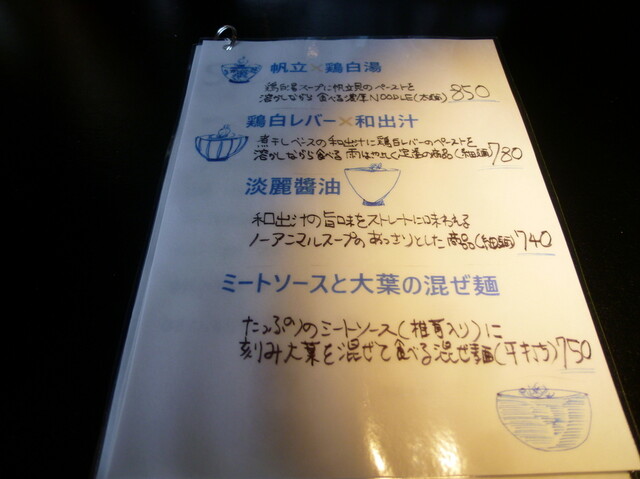 帆立×鶏白湯
鶏白湯スープに帆立貝のペーストを
溶かしながら食べる濃厚NOODLE(太麺) 850
鶏白レバー×和出汁
煮干しベースの和出汁に鶏白レバーのペーストを
溶かしながら食べる 定番の商品(細麺) 780
淡麗醬油
和出汁の旨味をストレートに味わえる
ノーアニマルスープのあっさりとした商品(細麺) 740
ミートソースと大葉の混ぜ麺
たっぷりのミートソース(椎茸入り)に
刻み大葉を混ぜて食べる混ぜ麺(平打ち) 750